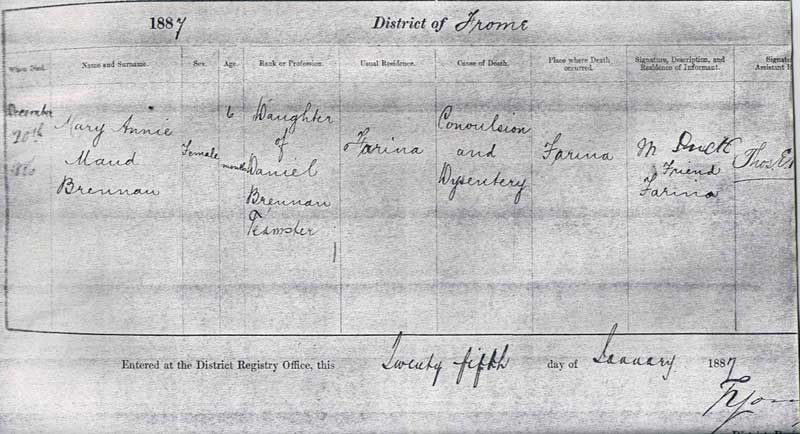 1887 District of Frome
When Died. Name and Surname. Sex. Age. Rank or Profession. Usual Residence. Cause of Death. Place where Death occurred. Signature, Description, and Residence of Informant.
December
20th
1886
Mary Annie
Maud
Brennan
Female
6
months
Daughter
of
Daniel
Brennan
Teamster
Farina
Convulsion
and
Dysentery
Farina
M
Friend
Farina
Thos.
Entered at the District Registry Office, this Twenty fifth day of January 1887